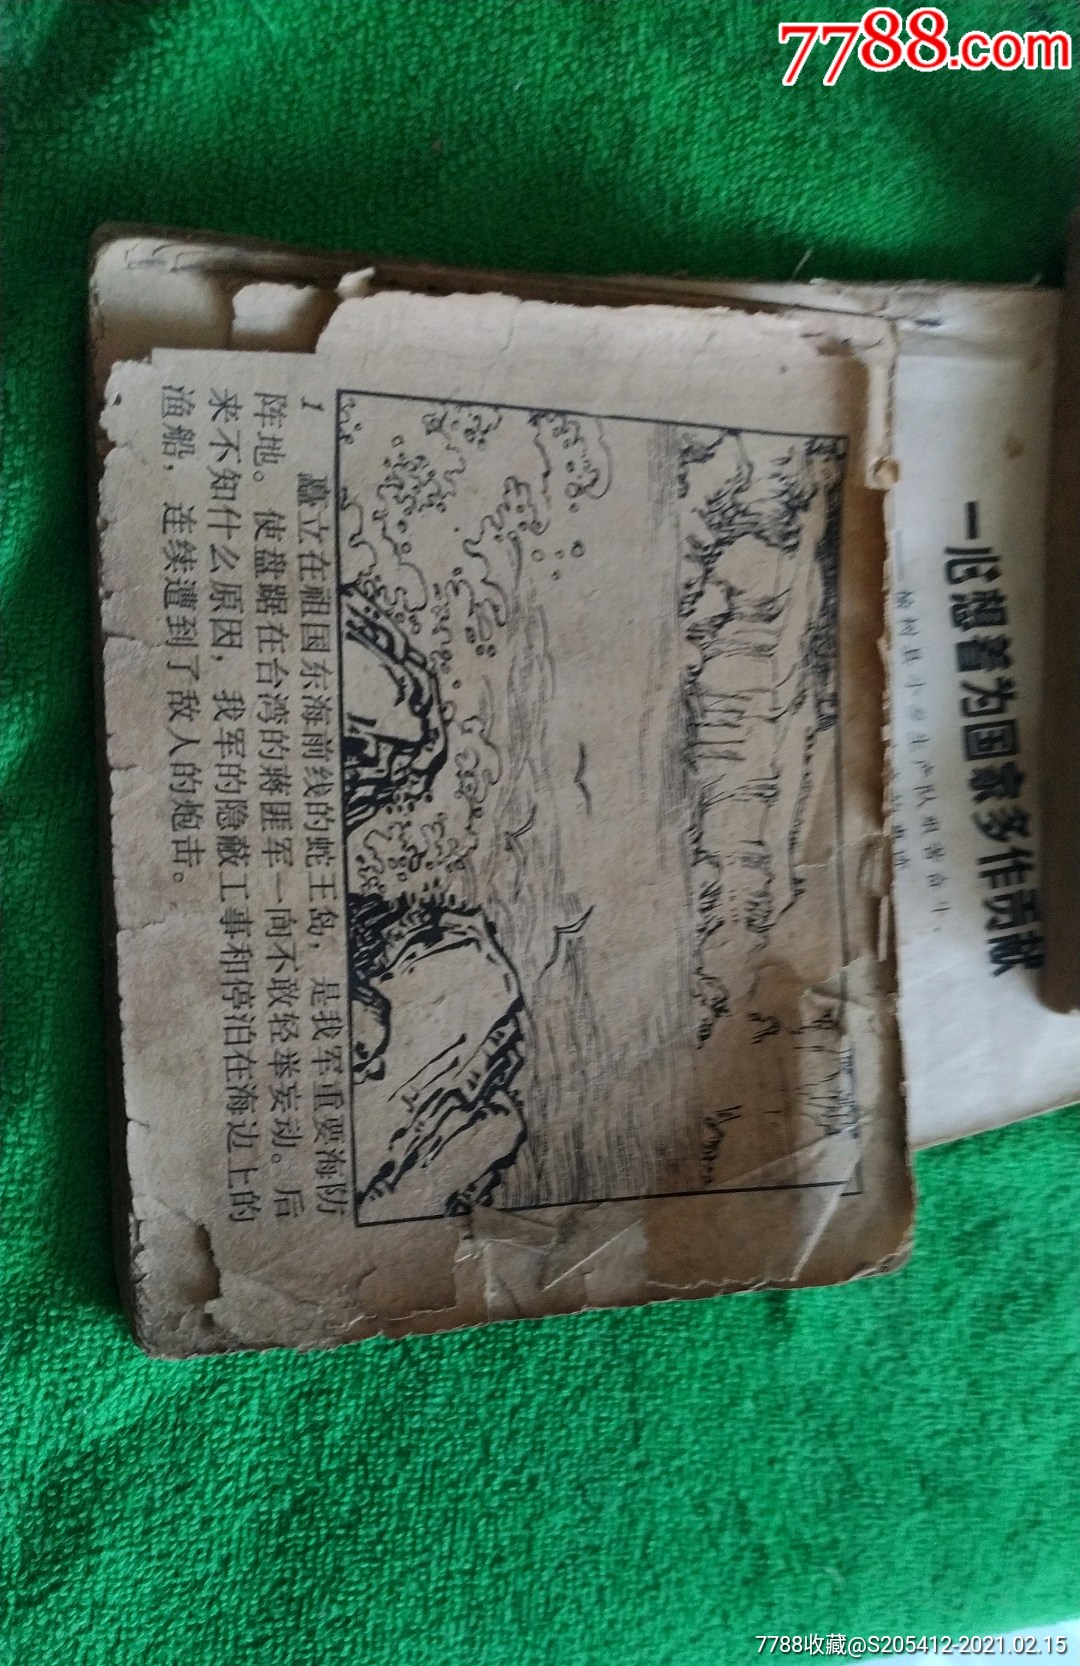 7788.com
一心想着为国家多作贡献
1 矗立在祖国东海前线的蛇王岛，是我军重要海防
阵地。使盘踞在台湾的蒋匪军一向不敢轻举妄动。后
来不知什么原因，我军的隐蔽工事和停泊在海边上的
渔船，连续遭到了敌人的炮击。
7788收藏@S205412-2021.02.15